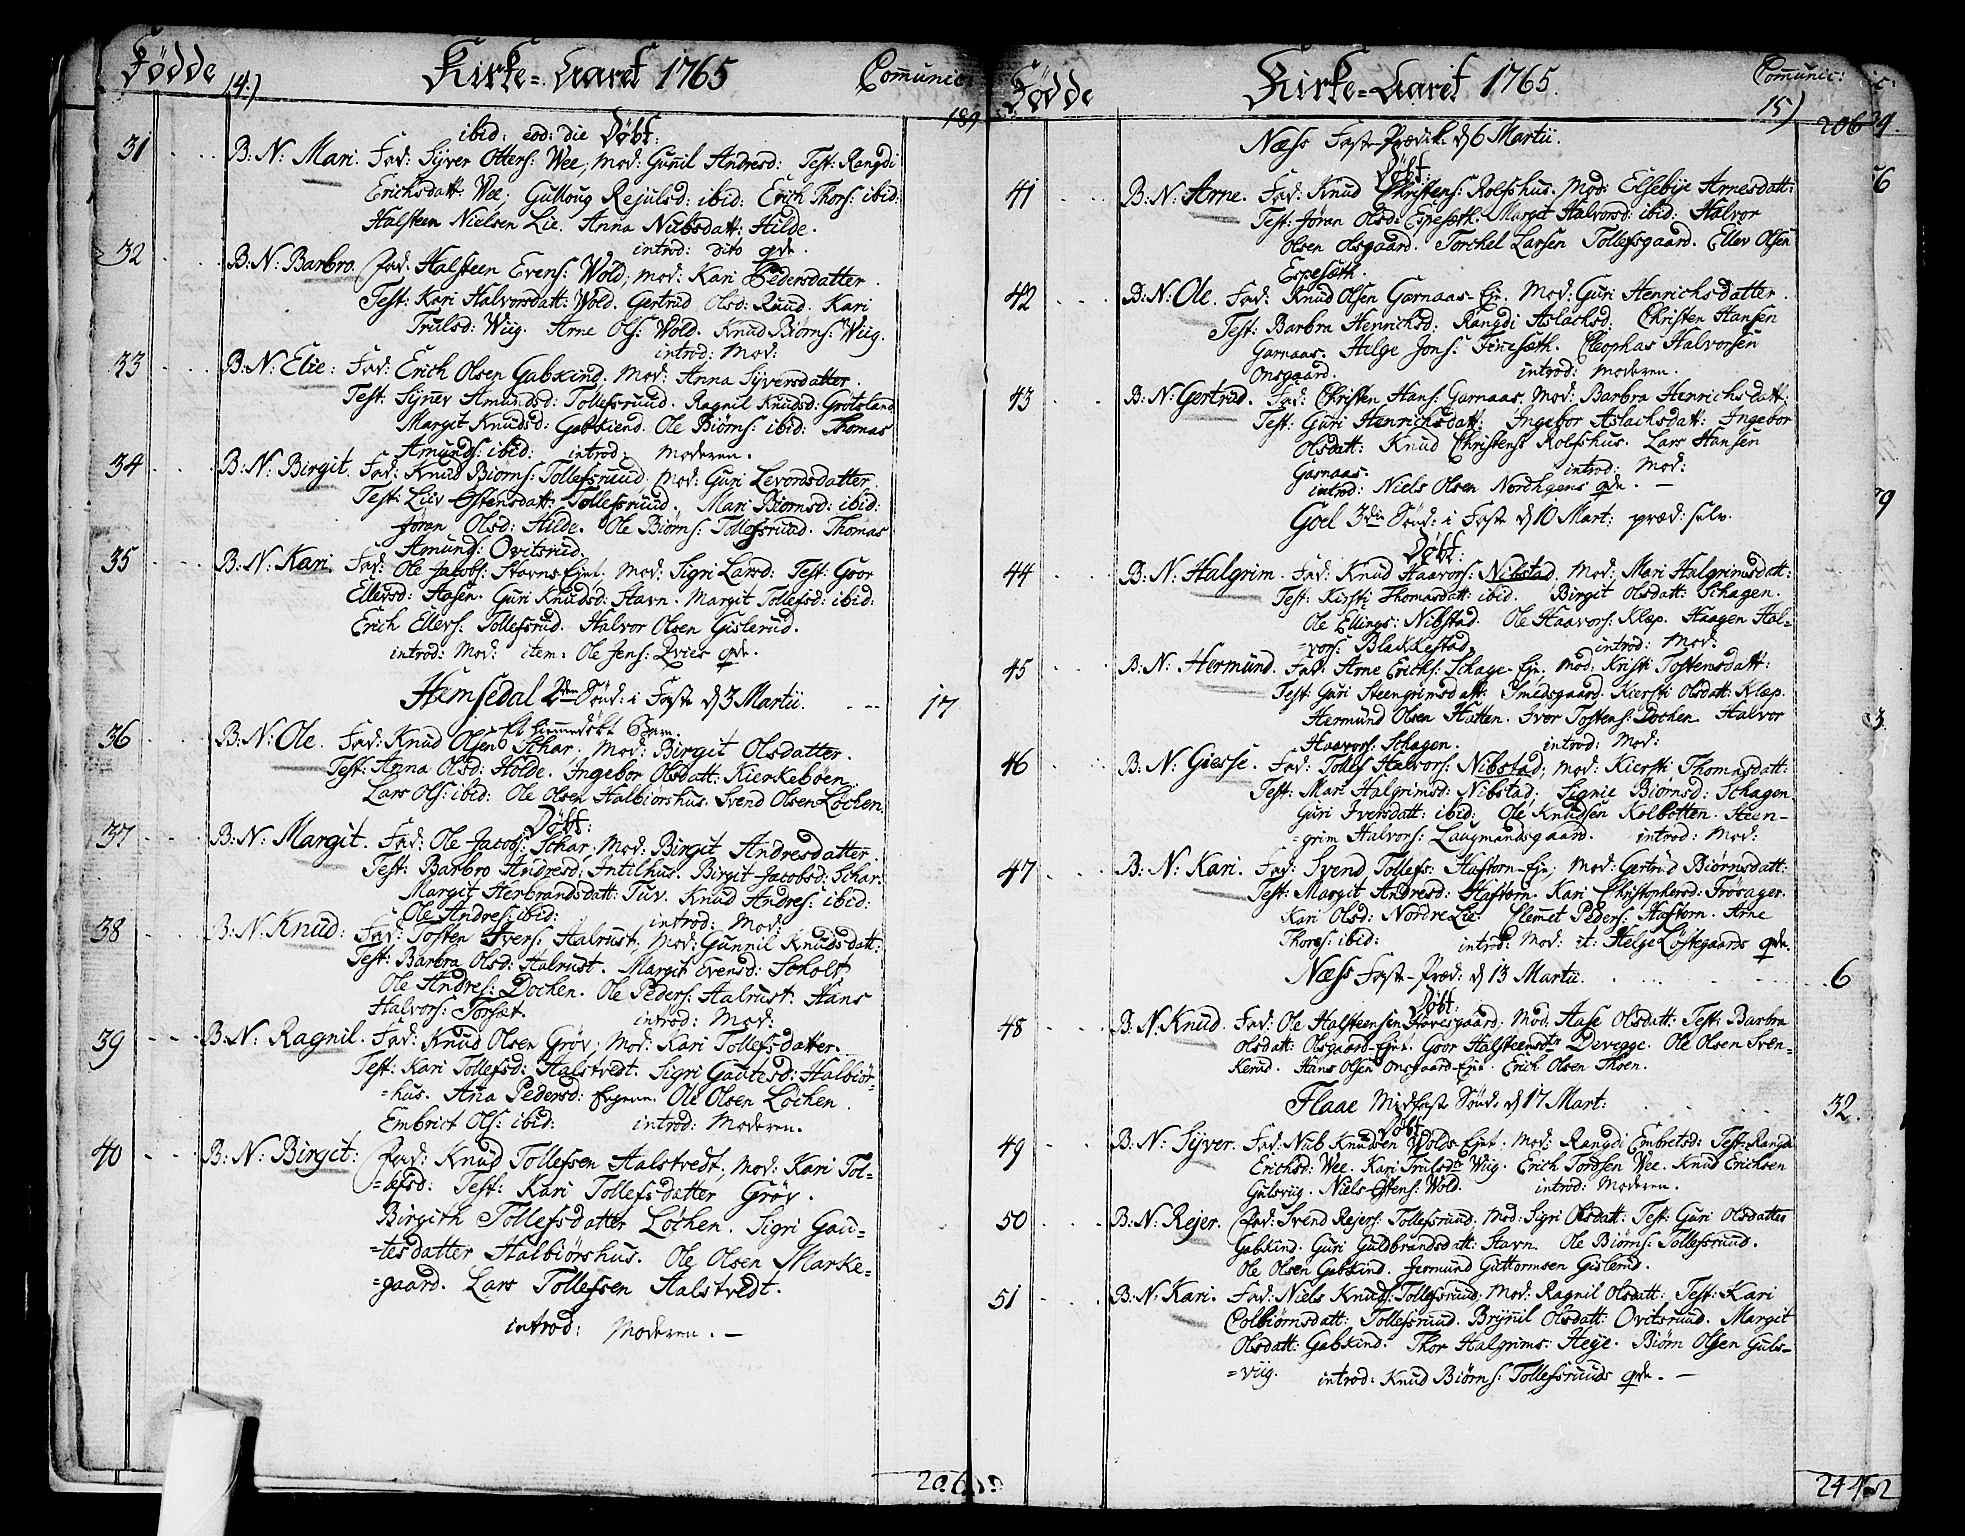 Fødde 14.) Kirke-Aaret 1765 Comunic:
189
ibid: eod: die Døbt:
31 B: N: Mari. Fad: Syver Otters: Wee, Mod: Gunil Andresd: Test: Rangdi
Erichsdatt: Wee, Gulloug Rejulsd: ibid: Erich Thors: ibid:
Halsteen Nielsen Lie. Anna Nubsdatt: Hilde.
introd: dito qde.
32 B: N: Barbro. Fad: Halsteen Evens: Wold, Mod: Kari Pedersdatter.
Test: Kari Halvorsdatt: Wold. Gertrud Olsd: Ruud. Kari
Trulsd: Wiig. Arne Ols: Wold. Knud Biørns: Wiig.
introd: Mod:
33 B: N: Elie: Fad: Erich Olsen Gabkind. Mod: Anna Syversdatter.
Test: Synev Amundsd: Tollefsruud. Ragnil Knudsd: Grotsland
Margit Knudsd: Gabkiend. Ole Biørns: ibid: Thomas
Amunds: ibid: introd: Moderen.
34 B: N: Birgit. Fad: Knud Biørns: Tollefsruud. Mod: Guri Levordsdatter.
Test: Liiv Ostensdatt: Tollefsruud. Mari Biørnsd: ibid:
Jøran Olsd: Hilde. Ole Biørns: Tollefsruud. Thomas
Amunds: Ovitsrud.
35 B: N: Kari. Fad: Ole Jacobs: Stavns Ejet. Mod: Sigri Larsd: Test: Goor
Ellevsd: Aasen. Guri Knudsd: Stavn. Margit Tollefsd: ibid:
Erich Ellevs: Tollefsrud. Halvor Olsen Gislerud.
introd: Mod: item: Ole Jens: Evies qde.
Hemsedal 2den Sønd: i Faste d 3 Martii. 17
Et hiemedøbt
36 B: N: Ole. Fad: Knud Olsen Schar. Mod: Birgit Olsdatter.
Test: Anna Olsd: Holde. Ingebor Olsdatt: Kierkebøen
Lars Ols: ibid: Ole Olsen Halbiørshus. Svend Olsen Løchen.
Døbt:
37 B: N: Margit. Fad: Ole Jacobs: Schar. Mod: Birgit Andresdatter
Test: Barbro Andresd: Intilhus. Birgit Jacobsd: Schar.
Margit Herbrandsdatt: Tuv. Knud Andres: ibid:
Ole Andres: ibid: introd: Mod:
38 B: N: Knud: Fad: Tosten Ivers: Aalrust. Mod: Gunnil Knudsdatt:
Test: Barbra Olsd: Aalrust. Margit Evensd: Scholt
Ole Andres: Dochen. Ole Peders: Aalrust. Hans
Halvors: Torsæt. introd: Mod:
39 B: N: Ragnil. Fad: Knud Olsen Grøv, Mod: Kari Tollefsdatter.
Test: Kari Tollefsd: Aalstvedt. Sigri Gautesd: Halbiør-
-hus. Ana Pedersd: Ole Olsen Løchen.
Embrict Ols: ibid: introd: Moderen.
40 B: N: Birgit: Fad: Knud Tollefsen Aalstvedt, Mod: Kari Tol-
-lefsd: Test: Kari Tollefsdatter Grøv.
Birgith Tollefsdatter Løchen. Sigri Gau-
-tesdatter Halbiørshus. Ole Olsen Marke-
-gaard. Lars Tollefsen Aalstvedt.
introd: Moderen. —
206
Fødde Kirke-Aaret 1765. Comunic:
15) 206
Næss Faste-Prædik: d 6 Martii.
Døbt:
41 B: N: Arne. Fad: Knud Christens: Rolfshus. Mod: Elsebije Arnesdatt:
Test: Jøran Olsd: Espeseth. Margit Halvorsd: ibid: Halvor
Olsen Olsgaard. Torchel Larsen Tollefsgaard. Ellev Olsen
Espesæth.
42 B: N: Ole. Fad: Knud Olsen Garnaas-Eje. Mod: Guri Henrichsdatter.
Test: Barbra Henrichsd: Rangdi Aslachsd: Christen Hansen
Garnaas. Helge Jons: Finesæth. Cleophas Halvorsen
Onsgaard. introd: Moderen.
43 B: N: Gertrud. Fad: Christen Hans: Garnaas. Mod: Barbra Henrichsdatt:
Test: Guri Henrichsdatt: Ingebor Aslachsdatt: Ingebor
Olsdatt: Knud Christens: Rolfshus. Lars Hansen
Garnaas. introd: Mod:
introd: Niels Olsen Nordhgens qde. —
Goel 3die Sønd: i Faste d 10 Mart: præd: selv.
Døbt:
44 B: N: Halgrim. Fad: Knud Haavors: Nibstad. Mod: Mari Halgrimsdatt:
Test: Kirsti Thomasdatt: ibid. Birgit Olsdatt: Schagen.
Ole Ellings: Nibstad. Ole Haavors: Klæp. Haagen Hal-
-vors: Blakkestad. introd: Mod:
45 B: N: Hermund. Fad: Arne Erichs: Schage-Eje, Mod: Kristi Tostensdatt:
Test: Guri Steengrimsdatt: Smedsgaard. Kiersti Olsdatt: Klæp.
Hermund Olsen Hatten. Iver Tostens: Dochen. Halvor
Haavors: Schagen. introd: Mod:
46 B: N: Giesse. Fad: Tollef Halvors: Nibstad, Mod: Kiersti Thomasdatt:
Test: Mari Halgrimsd: Nibstad, Signie Biørnsd: Schagen
Guri Iversdatt: ibid: Ole Knudsen Kolbotten. Steen-
-grim Halvors: Laugmandsgaard. introd: Mod:
47 B: N: Kari. Fad: Svend Tollefs: Haftorn-Eje, Mod: Gertrud Biørnsdatt:
Test: Margit Andresd: Haftorn. Kari Christophersd: Trøsager.
Kari Olsd: Nordre Lie. Clemet Peders: Haftorn. Arne
Thores: ibid: introd: Mod: it: Helge Løstegaards qde.
Næss Faste-Præd: d 13 Martii. 6
Døbt:
48 B: N: Knud. Fad: Ole Halsteensen Hovesgaard, Mod: Aase Olsdatt: Test: Barbra
Olsdatt: Olsgaard-Ejet. Goor Halsteensdtr Devegge. Ole Olsen Sven-
kerud. Hans Olsen Onsgaard-Ejet. Erich Olsen Thoen.
Flaae Midfaste Sønd: d 17 Mart: 32.
Døbt
49 B: N: Syver. Fad: Nub Knudsen Wolds-Ejet. Mod: Rangdi Embretsd: Test: Rangdi
Erichsd: Wee. Kari Trulsdtr Wiig. Erich Tordsen Wee. Knud Erichsen
Gulsviig. Niels Ostens: Wold. introd: Moderen.
50 B: N: Rejer. Fad: Svend Rejers: Tollefsruud, Mod: Sigri Olsdatt: Test: Guri Olsdatter
Gabkind. Guri Guldbrandsdatt: Stavn. Ole Biørns: Tollefsruud.
Ole Olsen Gabkind. Jermund Guttormsen Gislerud.
51 B: N: Kari. Fad: Niels Knuds: Tollefsruud, Mod: Ragnil Olsdatt: Test: Kari
Colbiørnsdatt: Tollefsruud. Brynil Olsdatt: Ovitsruud. Margit
Olsdatt: Gabkind. Thor Halgrims: Heije. Biørn Olsen Guls-
-viig. introd: Knud Biørns: Tollefsruuds qde. —
244